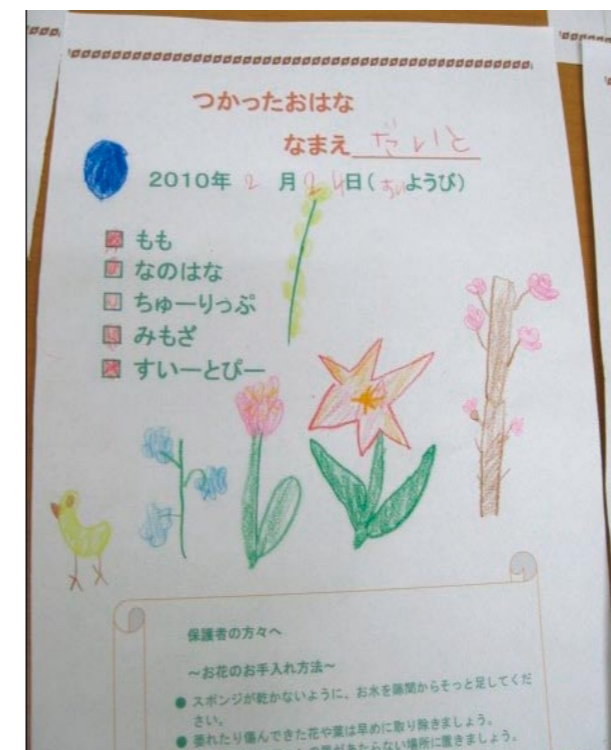 つかったおはな
なまえ だいと
2010年 2月24日(すいようび)
もも
なのはな
ちゅーりっぷ
みもざ
すいーとぴー
保護者の方々へ
～お花のお手入れ方法～
● スポンジが乾かないように、お水を隙間からそっと足してくだ
さい。
● 萎れたり傷んできた花や葉は早めに取り除きましょう。
の風があたらない場所に置きましょう。